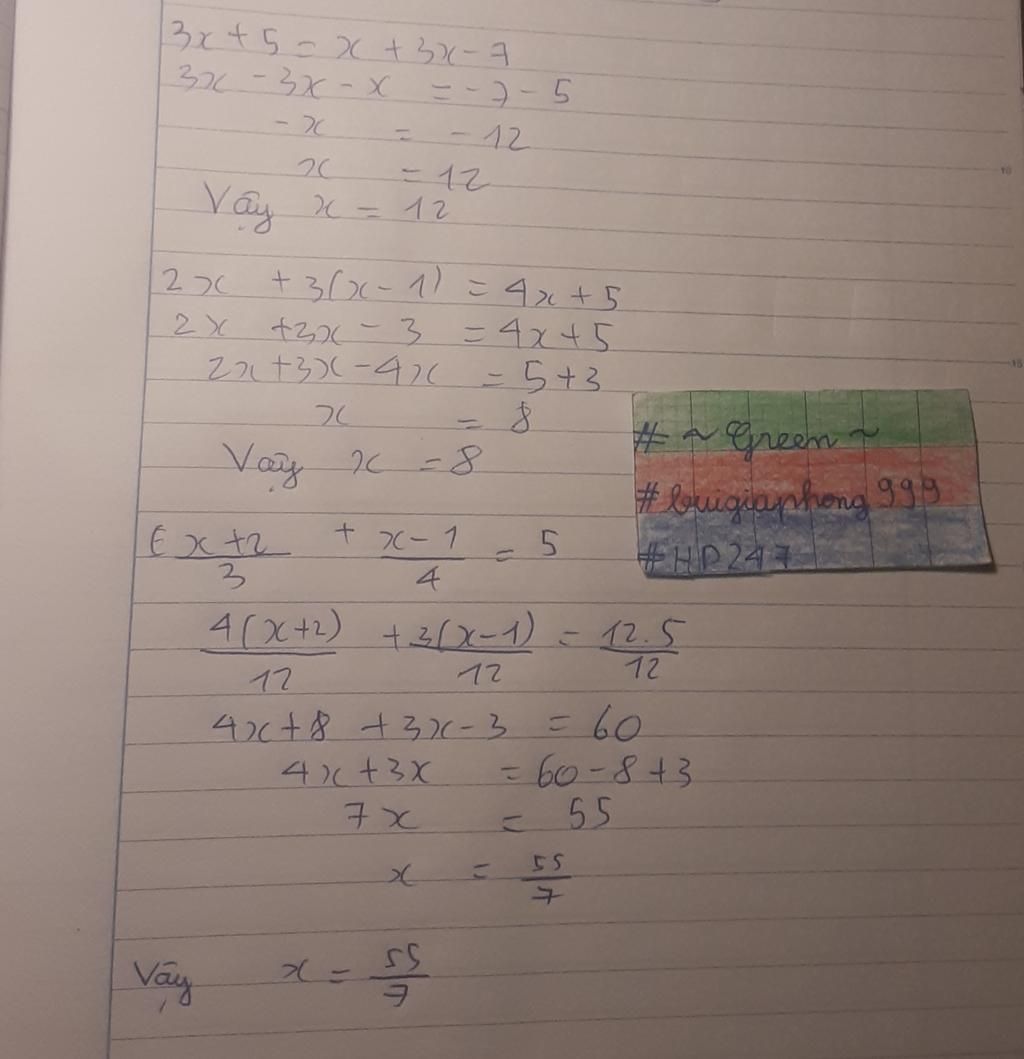 3x + 5 = x + 3x - 7
3x - 3x - x = -7 - 5
-x = -12
x = 12
Vậy x = 12
2x + 3(x - 1) = 4x + 5
2x + 3x - 3 = 4x + 5
2x + 3x - 4x = 5 + 3
x = 8
Vậy x = 8
# ~ Green ~
# buigiaphong 999
# HD 247
(x + 2)/3 + (x - 1)/4 = 5
4(x + 2)/12 + 3(x - 1)/12 = 12.5/12
4x + 8 + 3x - 3 = 60
4x + 3x = 60 - 8 + 3
7x = 55
x = 55/7
Vậy x = 55/7